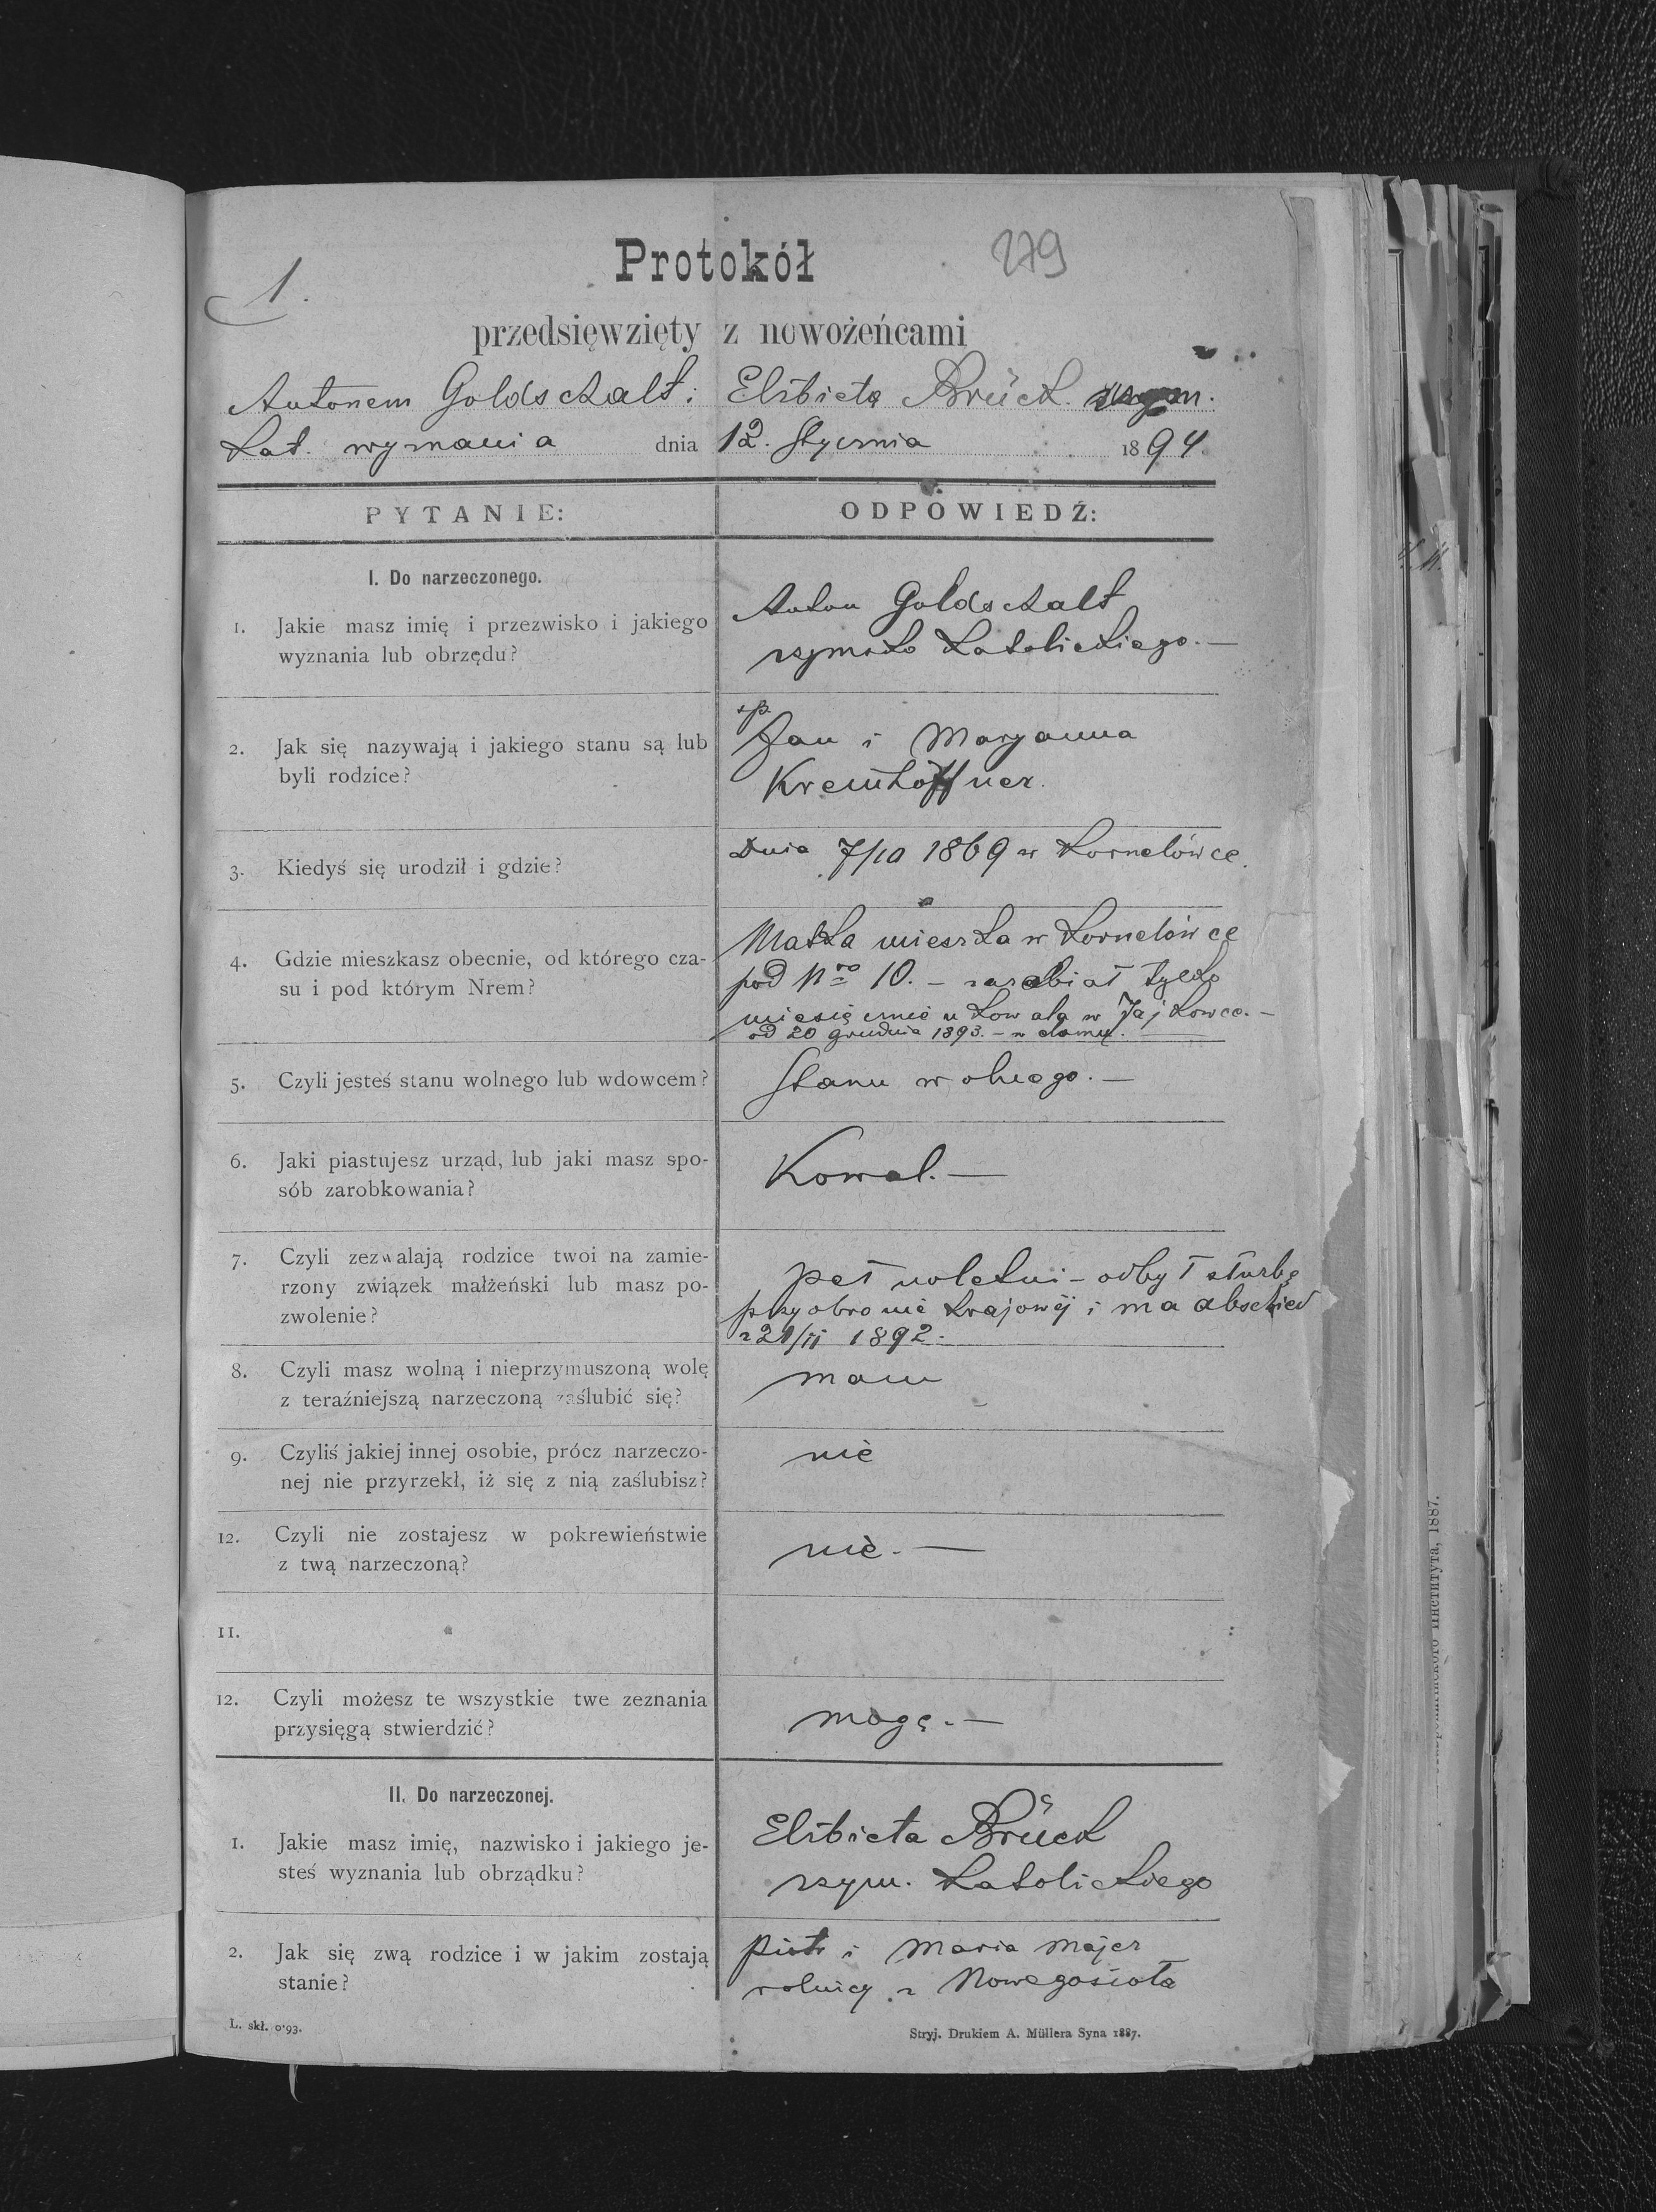 1.
Protokół
279
przedsięwzięty z nowożeńcami
Antonem Goldschalt i Elżbietą Brück rzym.
kat. wyznania dnia 12. Stycznia 1894.
PYTANIE:
ODPOWIEDŹ:
I. Do narzeczonego.
1. Jakie masz imię i przezwisko i jakiego
wyznania lub obrzędu?
Anton Goldschalt
rzymsko katolickiego.—
2. Jak się nazywają i jakiego stanu są lub
byli rodzice?
sp.
Jan i Maryanna
Kremhöffner.
3. Kiedyś się urodził i gdzie?
Dnia 7/10 1869 w Kornelówce.
4. Gdzie mieszkasz obecnie, od którego cza-
su i pod którym Nrem?
Matka mieszka w Kornelówce
pod Nro 10. – zarabiał tylko
miesięcznie u kowala w Jajkowce.–
od 20 grudnia 1893. – w domu.
5. Czyli jesteś stanu wolnego lub wdowcem?
Stanu wolnego.—
6. Jaki piastujesz urząd, lub jaki masz spo-
sób zarobkowania?
Kowal.—
7. Czyli zezwalają rodzice twoi na zamie-
rzony związek małżeński lub masz po-
zwolenie?
pełnoletni – odbył służbę
przy obronie krajowéj i ma abschied
z 21/11 1892.
8. Czyli masz wolną i nieprzymuszoną wolę
z teraźniejszą narzeczoną zaślubić się?
mam
9. Czyliś jakiej innej osobie, prócz narzeczo-
nej nie przyrzekł, iż się z nią zaślubisz?
nie
12. Czyli nie zostajesz w pokrewieństwie
z twą narzeczoną?
nie.—
11.
12. Czyli możesz te wszystkie twe zeznania
przysięgą stwierdzić?
mogę.—
II. Do narzeczonej.
1. Jakie masz imię, nazwisko i jakiego je-
steś wyznania lub obrządku?
Elżbieta Brück
rzym. katolickiego
2. Jak się zwą rodzice i w jakim zostają
stanie?
Piotr i Maria Majer
rolnicy z Nowegosioła
L. skł. 0'93.
Stryj. Drukiem A. Müllera Syna 1887.
Института, 1887.